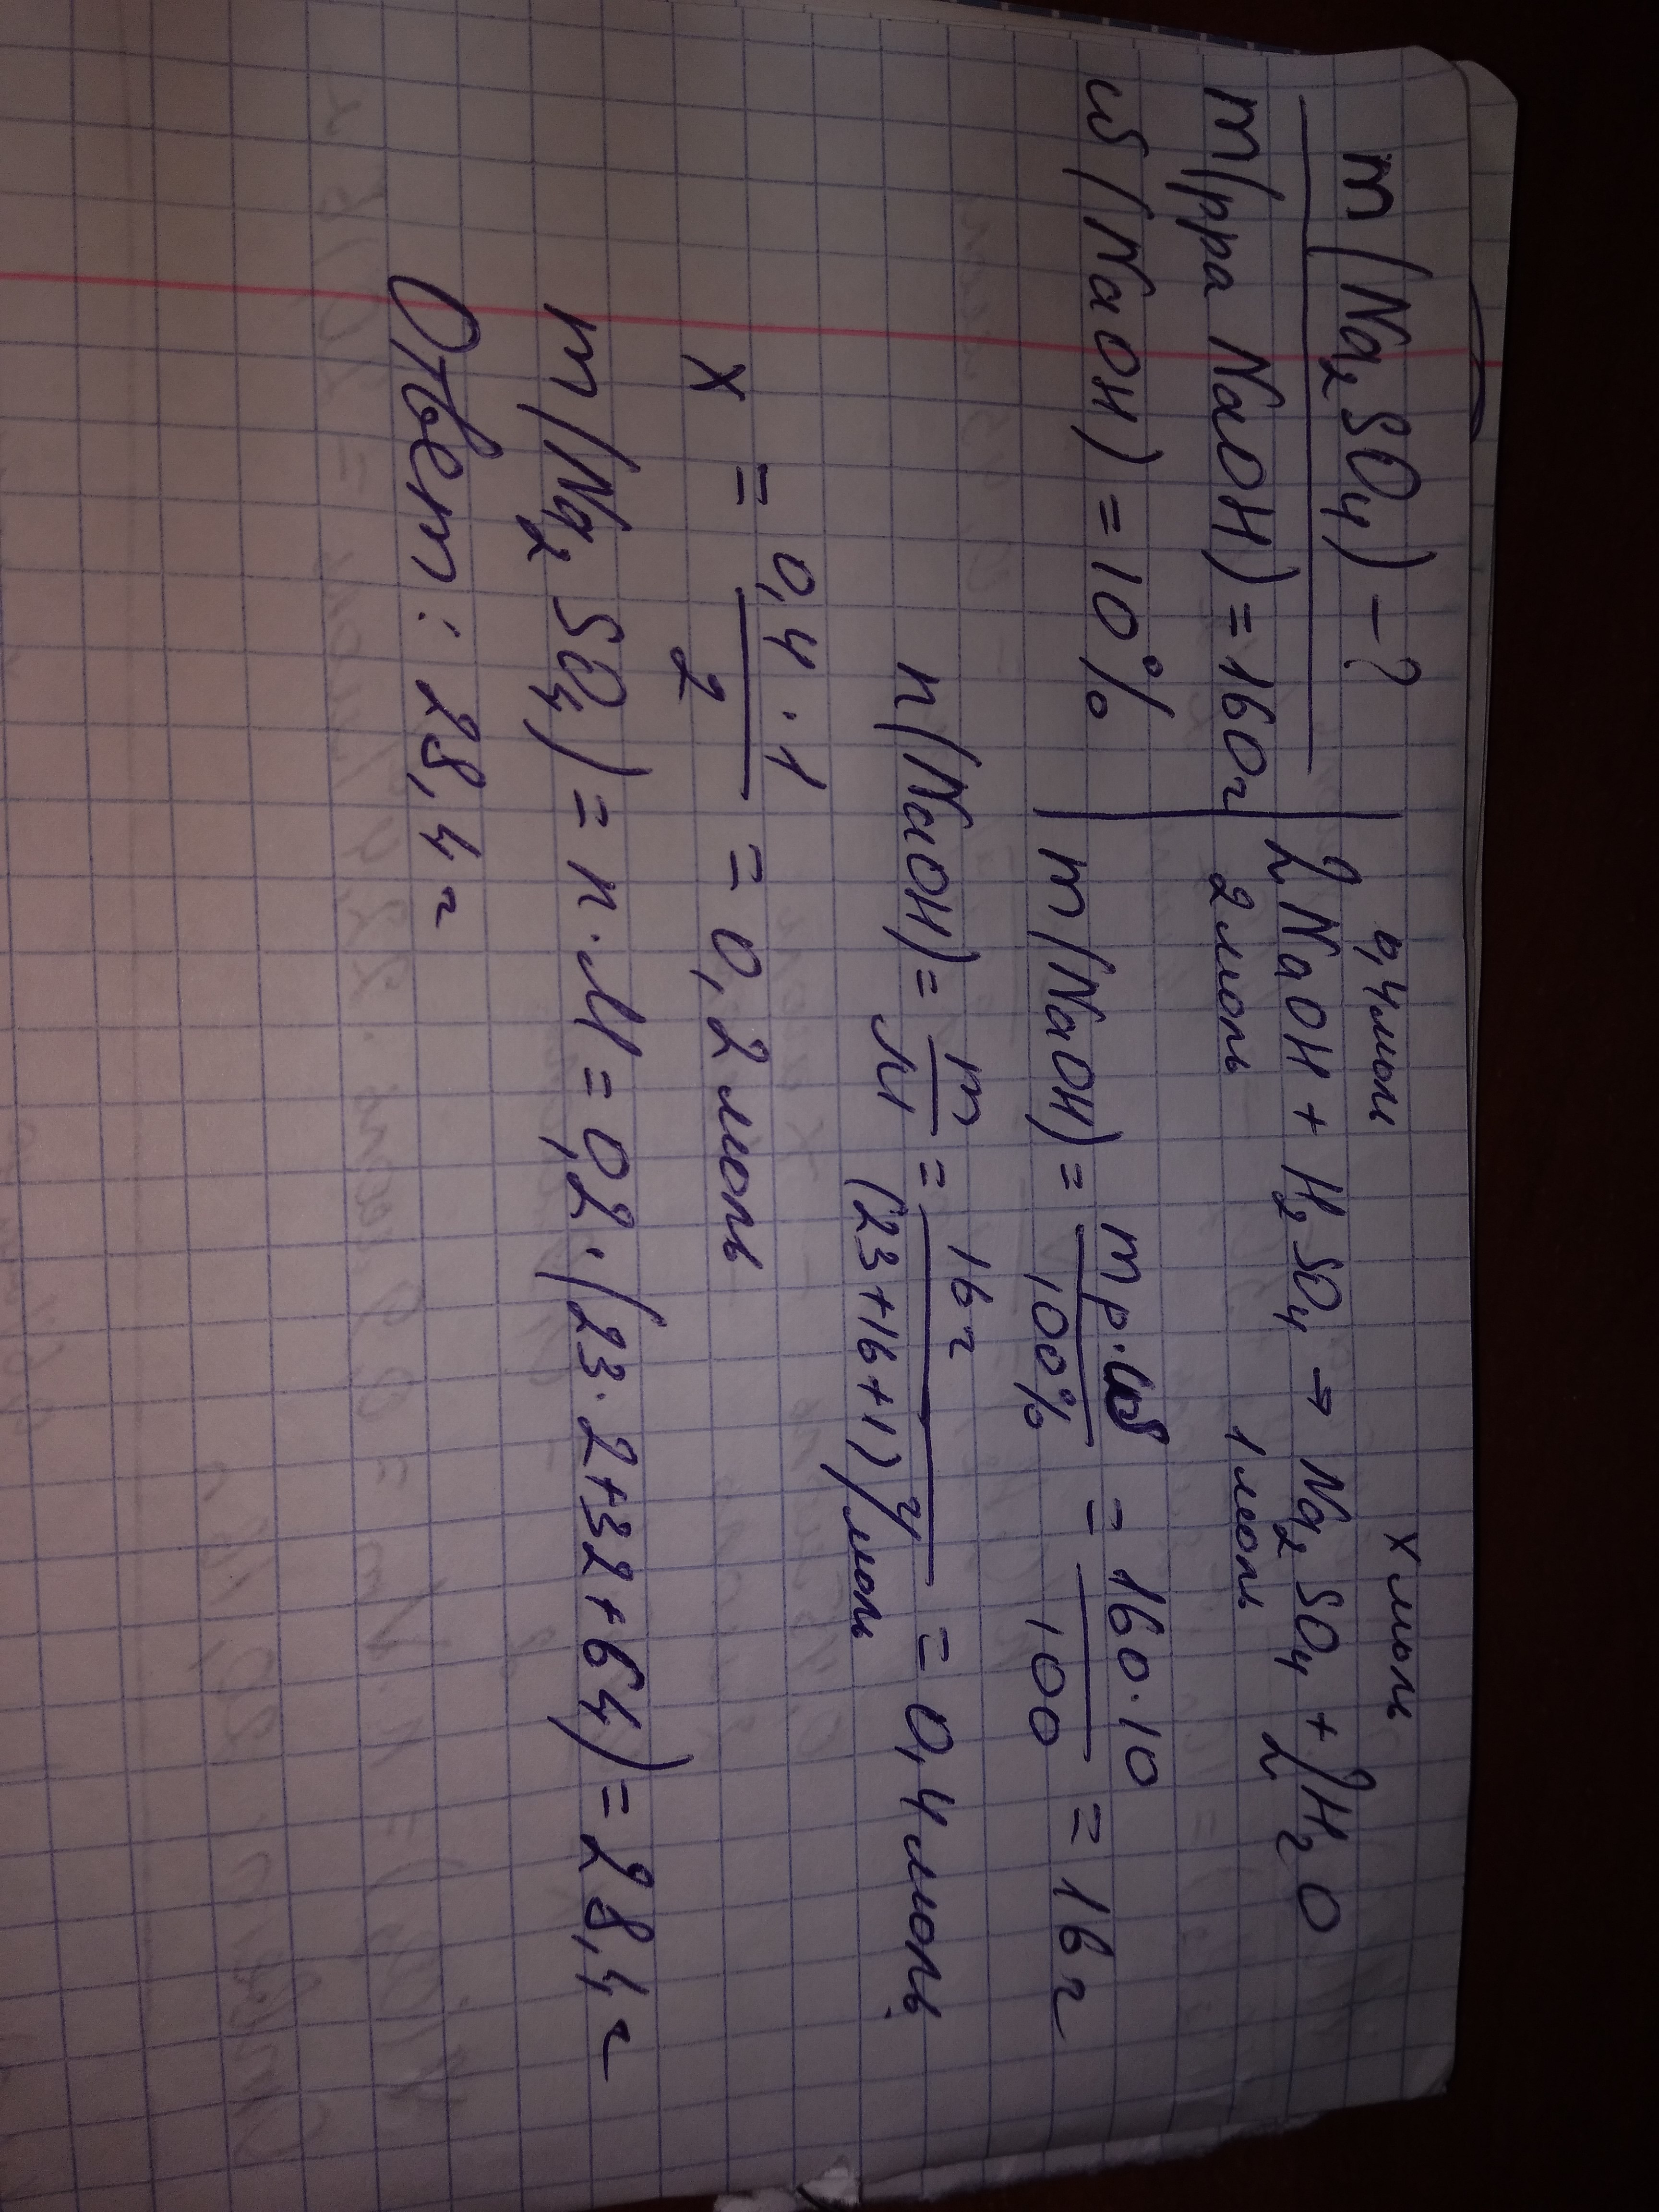 m(Na₂SO₄) - ?
m(рра NaOH) = 160г
ω(NaOH) = 10%
0,4моль х моль
2NaOH + H₂SO₄ → Na₂SO₄ + 2H₂O
2моль 1моль
m(NaOH) = mр.·ω / 100% = 160·10 / 100 = 16г
n(NaOH) = m / M = 16г / (23+16+1) г/моль = 0,4моль
x = 0,4 · 1 / 2 = 0,2моль
m(Na₂SO₄) = n·M = 0,2·(23·2+32+64) = 28,4г
Ответ: 28,4г